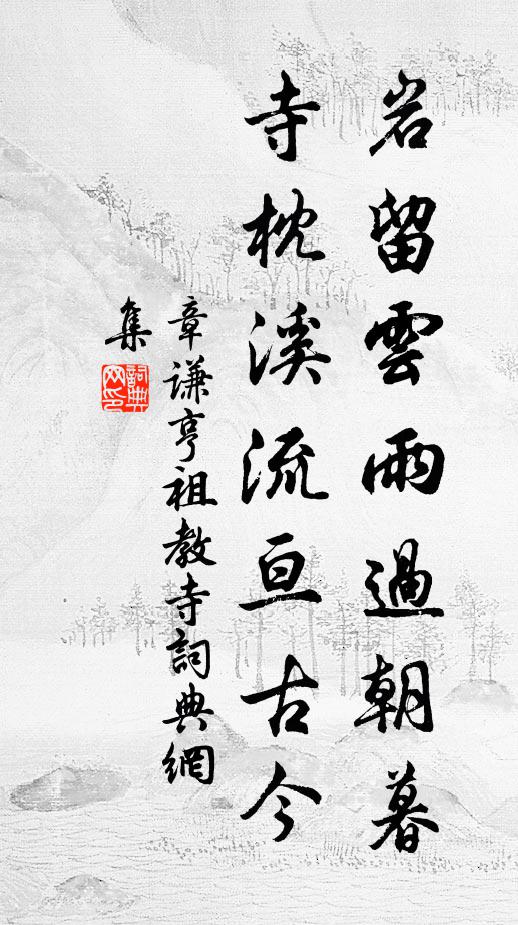 岩留雲雨過朝暮
寺枕溪流亘古今
章謙亨祖教寺詞典網
集
詞典網印